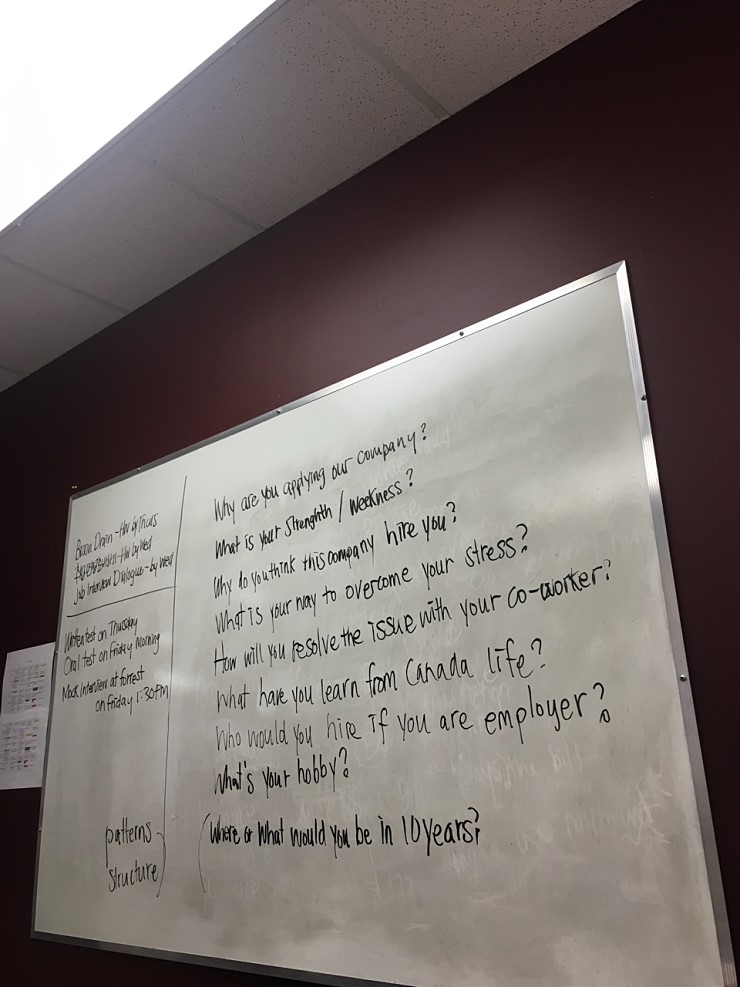 Brain Drain - HW by Thurs
HW by Wed
Job Interview Dialogue - by Wed
Written test on Thursday
Oral test on Friday Morning
Mock Interview at forrest
on Friday 1:30PM
patterns
structure
Why are you applying our company?
What is your Strenghth / Weekness?
Why do you think this company hire you?
What is your way to overcome your stress?
How will you resolve the issue with your co-worker?
What have you learn from Canada life?
Who would you hire if you are employer?
What's your hobby?
(Where or What would you be in 10 years?